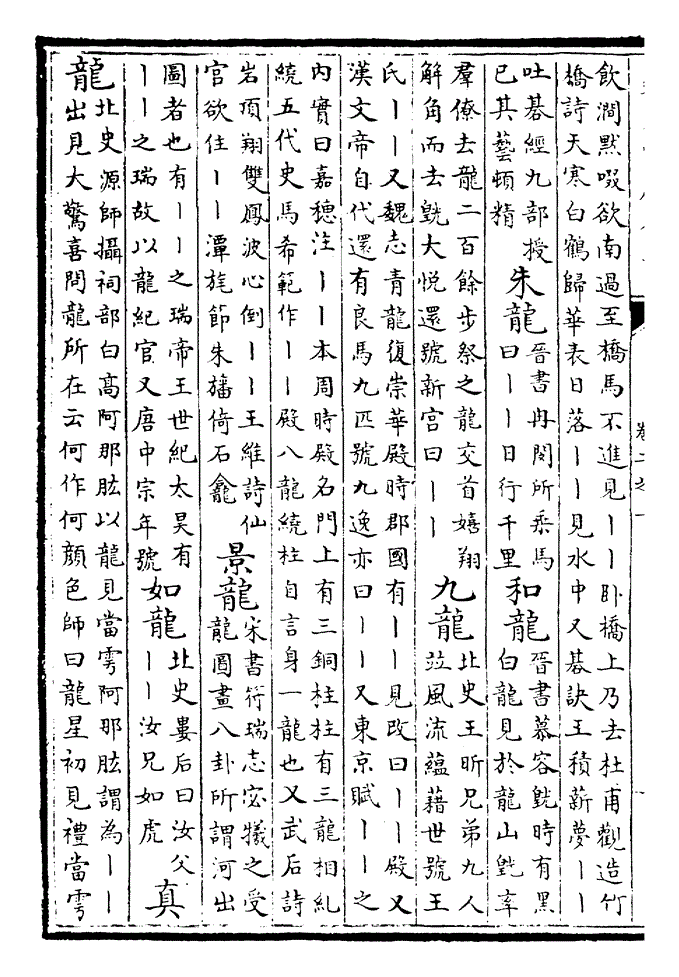 飲澗黙啜欲南過至橋馬不進見丨丨卧橋上乃去杜甫觀造竹
橋詩天寒白鶴歸華表日落丨丨見水中又碁訣王積薪夢丨丨
吐碁經九部授
已其藝頓精
朱龍
晉書冉閔所乗馬
曰丨丨日行千里
和龍
晉書慕容皝時有黑
白龍見於龍山皝率
羣僚去龍二百餘步祭之龍交首嬉翔
解角而去皝大悦還號新宫曰丨丨
九龍
北史王昕兄弟九人
竝風流蘊藉世號王
氏丨丨又魏志青龍復崇華殿時郡國有丨丨見改曰丨丨殿又
漢文帝自代還有良馬九匹號九逸亦曰丨丨又東京賦丨丨之
内實曰嘉穂注丨丨本周時殿名門上有三銅柱柱有三龍相糺
繞五代史馬希範作丨丨殿八龍繞柱自言身一龍也又武后詩
岩頂翔雙鳳波心倒丨丨王維詩仙
官欲住丨丨潭旄節朱旛倚石龕
景龍
宋書符瑞志宓犧之受
龍圖畫八卦所謂河出
圖者也有丨丨之瑞帝王世紀太昊有
丨丨之瑞故以龍紀官又唐中宗年號
如龍
北史婁后曰汝父
丨丨汝兄如虎
真
龍
北史源師攝祠部白高阿那肱以龍見當雩阿那肱謂為丨丨
出見大驚喜問龍所在云何作何顔色師曰龍星初見禮當雩
卷二之一